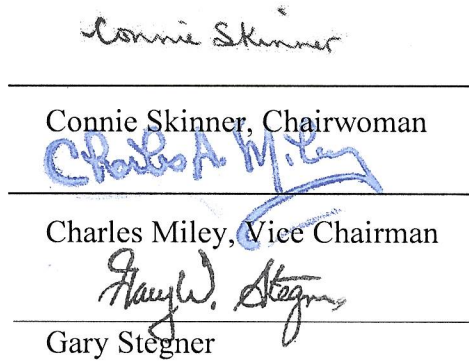 Connie Skinner
Connie Skinner, Chairwoman
Charles A. Miley
Charles Miley, Vice Chairman
Gary W. Stegner
Gary Stegner